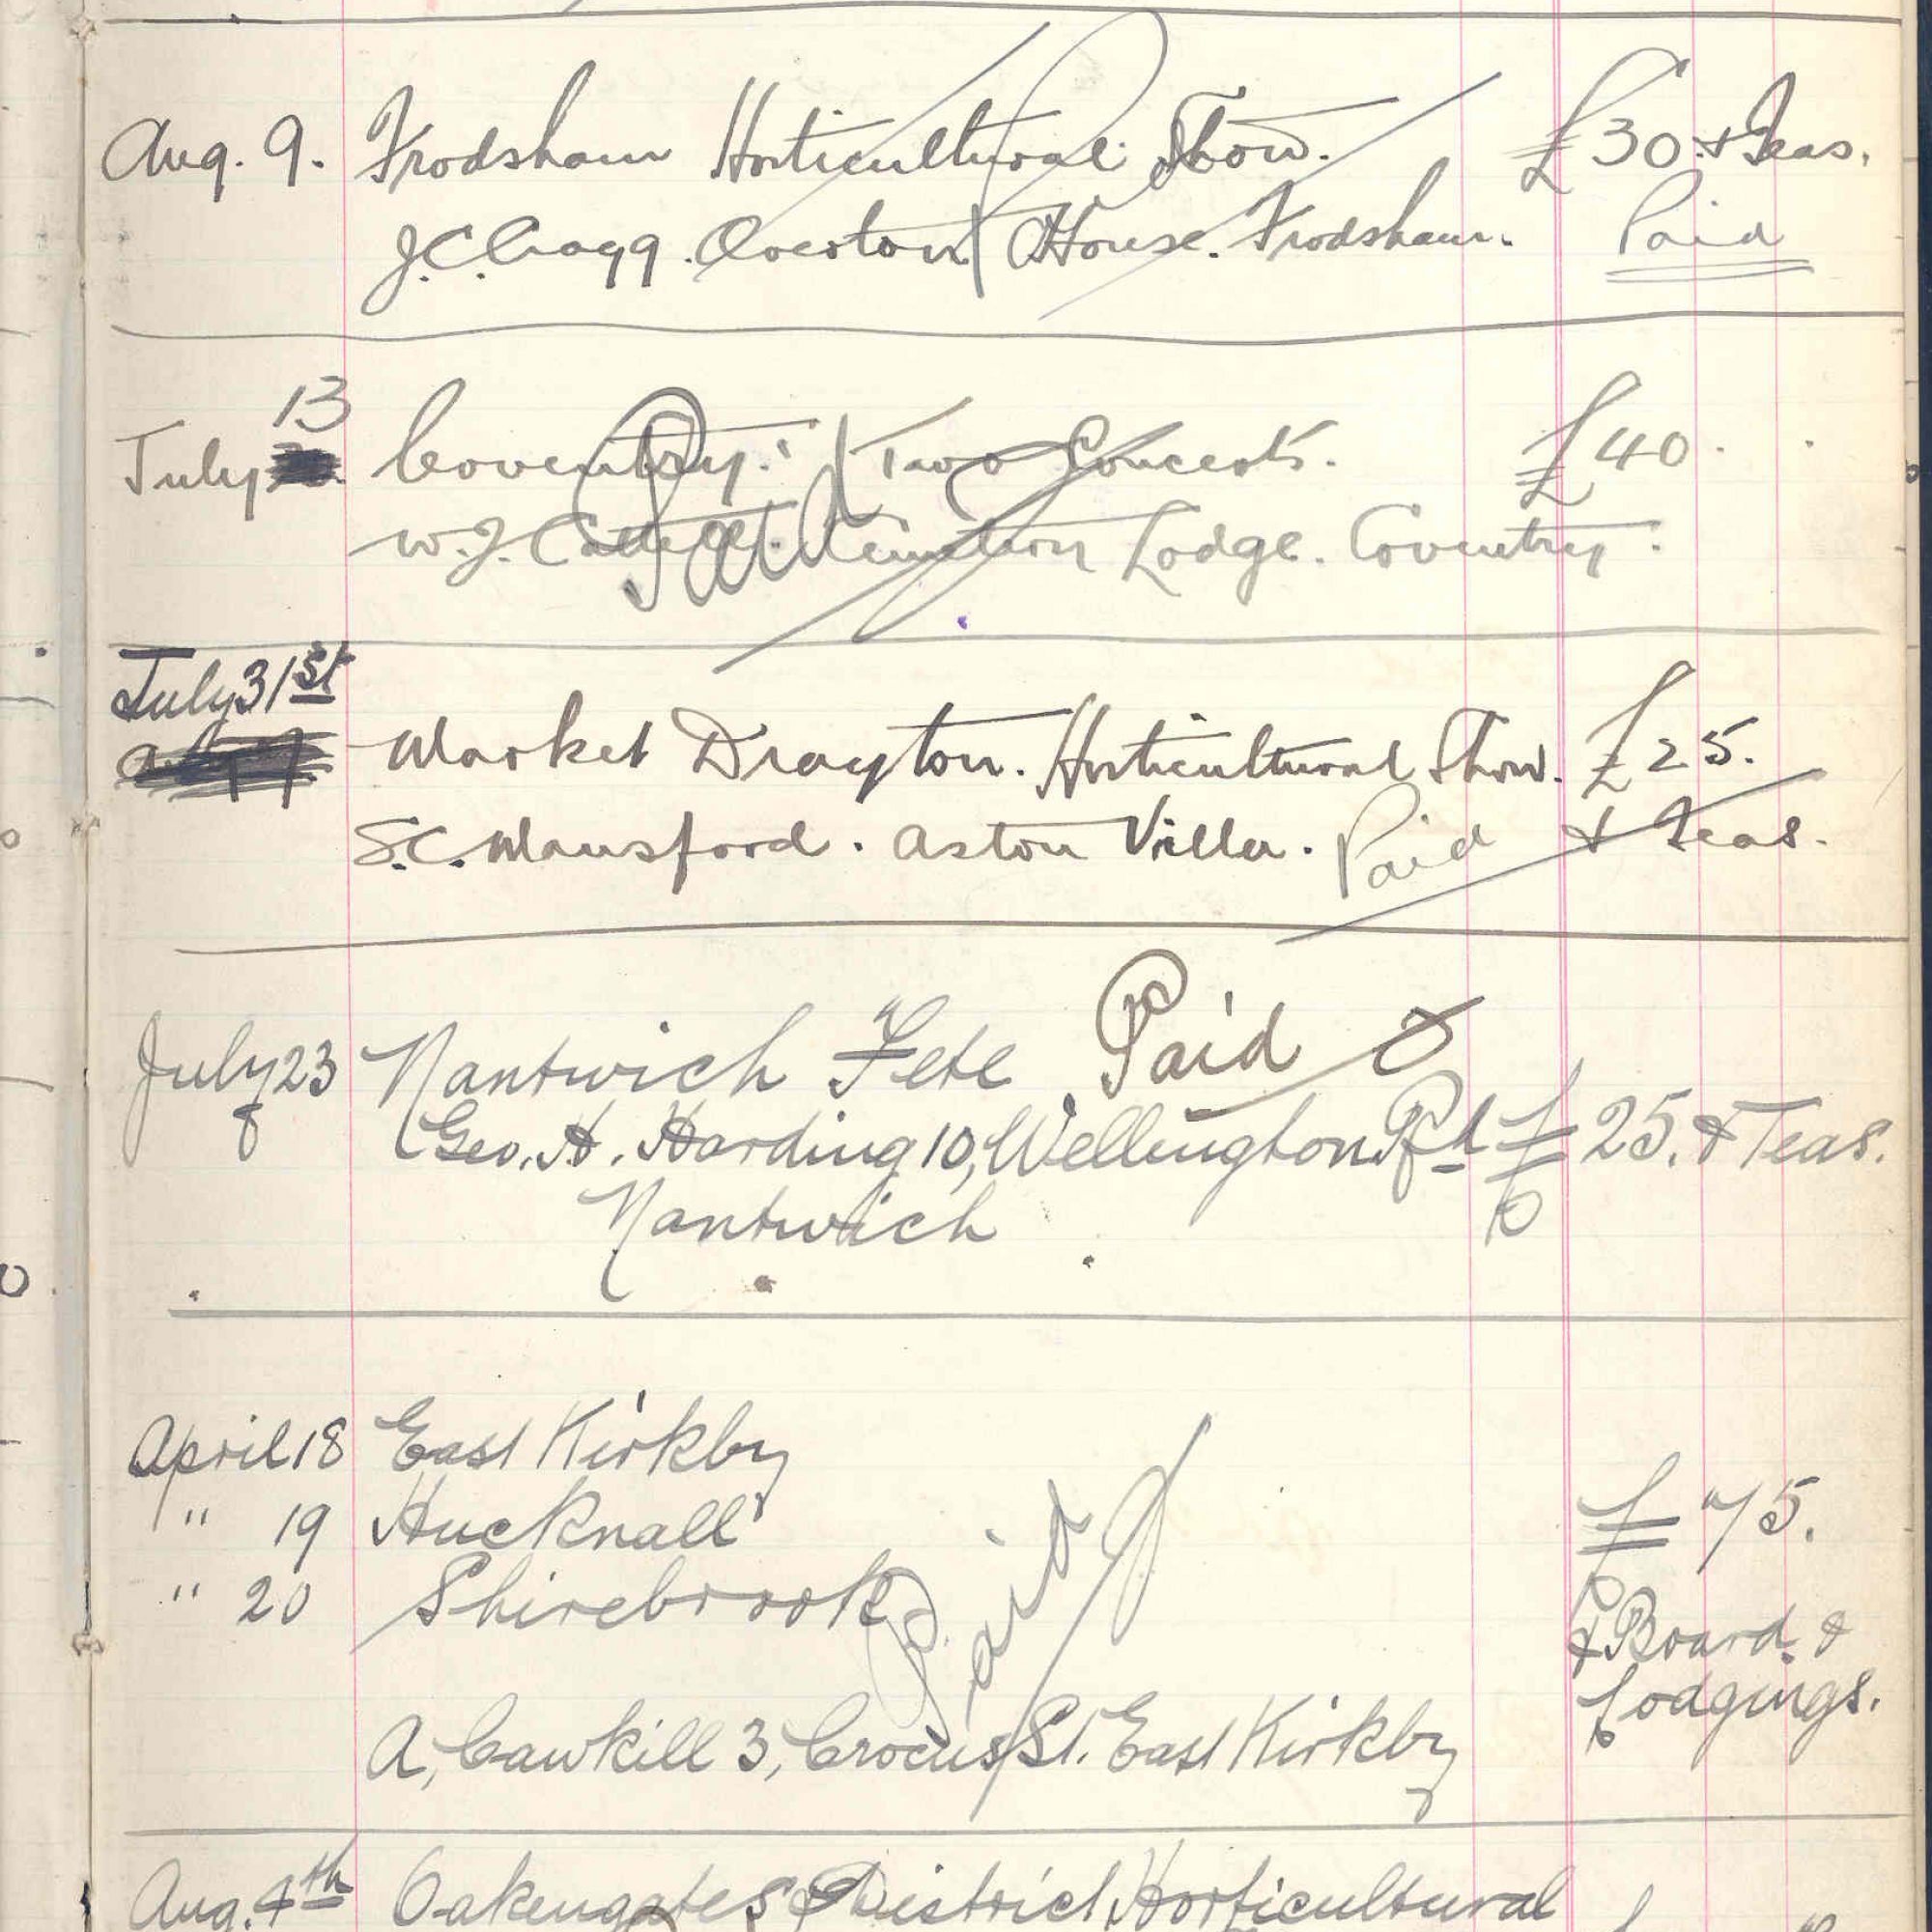 Aug. 9. Frodsham Horticultural Show. £30 & Teas.
J.C. Cragg. Overton House. Frodsham. Paid
13
July Coventry. Two Concerts. £40.
Paid
W.J. Lodge. Coventry.
July 31st
Market Drayton. Horticultural Show. £25.
S.C. Mansford. Aston Villa. Paid & Teas.
July 23 Nantwich Fete Paid
Geo. H. Harding 10, Wellington Rd £25. & Teas.
Nantwich
April 18 East Kirkby
" 19 Hucknall £75.
" 20 Shirebrook & Board &
Paid Lodgings.
A. Cawkill 3, Crocus St. East Kirkby
Aug. 4th Oakengates & District Horticultural